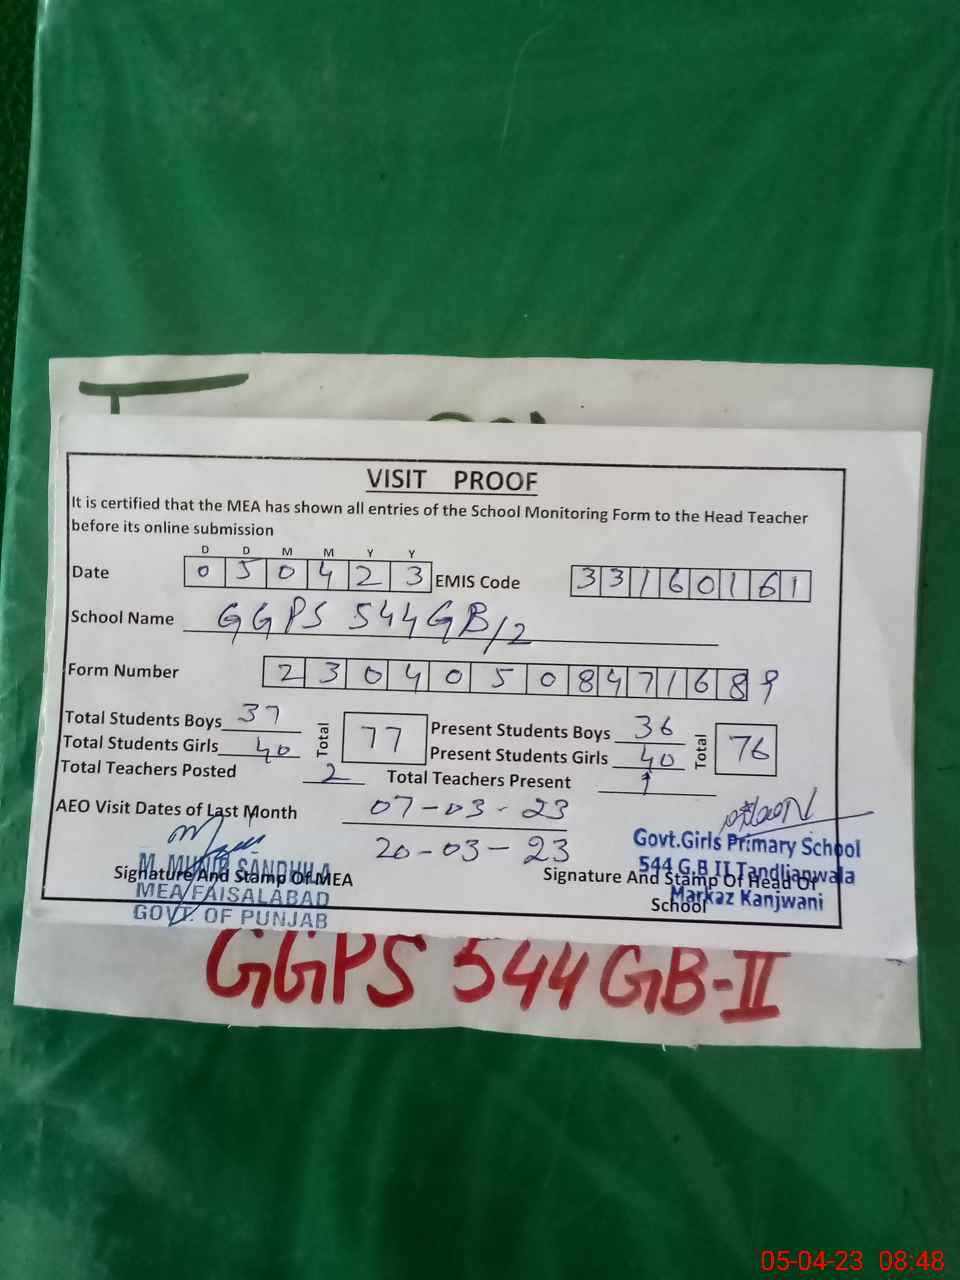 VISIT PROOF
It is certified that the MEA has shown all entries of the School Monitoring Form to the Head Teacher
before its online submission
D D M M Y Y
Date 0 5 0 4 2 3 EMIS Code 3 3 1 6 0 1 6 1
School Name GGPS 544GB/2
Form Number 2 3 0 4 0 5 0 8 4 7 1 6 8 9
Total Students Boys 37 Total 77 Present Students Boys 36 Total 76
Total Students Girls 40 Present Students Girls 40
Total Teachers Posted 2 Total Teachers Present 1
AEO Visit Dates of Last Month 07-03-23
20-03-23
Govt.Girls Primary School
544 G.B II Tandlianwala
Markaz Kanjwani
M. MUNIR SANDHILA
MEA/FAISALABAD
GOVT. OF PUNJAB
Signature And Stamp Of MEA
Signature And Stamp Of Head Of
School
GGPS 544 GB-II
05-04-23 08:48